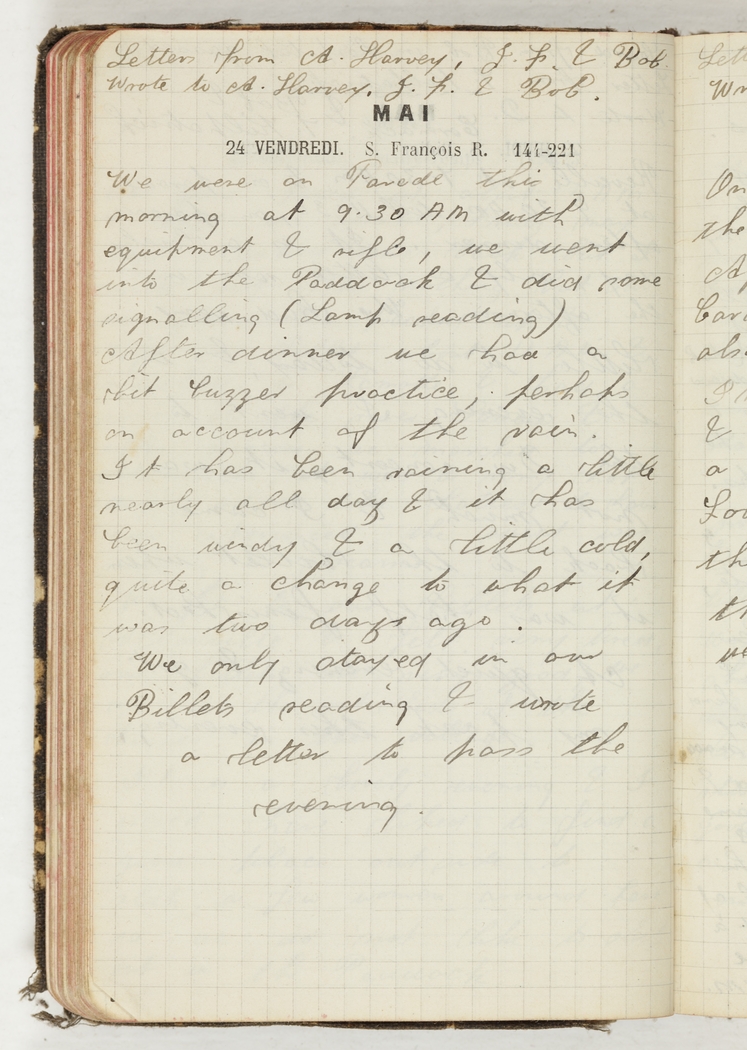 Letters from A. Harvey, J. F. & Bob
Wrote to A. Harvey, J. F. & Bob.
MAI
24 VENDREDI. S. François R. 144-221
We were on Parade this
morning at 9.30 AM with
equipment & rifle, we went
into the Paddock & did some
signalling (Lamp reading)
After dinner we had a
bit buzzer practice, perhaps
on account of the rain.
It has been raining a little
nearly all day & it has
been windy & a little cold,
quite a change to what it
was two days ago.
We only stayed in our
Billets reading & wrote
a letter to pass the
evening.
On
the
&
a